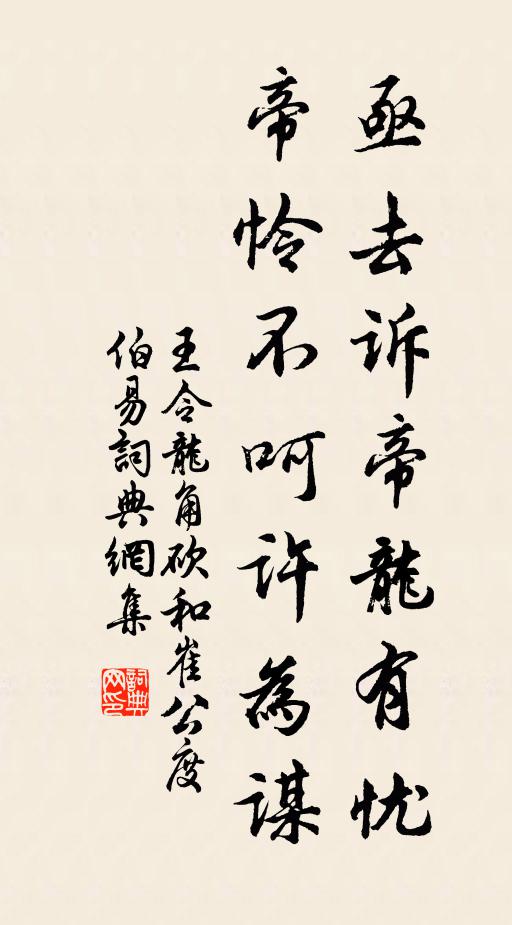 亟去诉帝龍有忧
帝怜不呵许為谋
王令龍角砍和崔公度
伯易詞典網集
詞典
网印